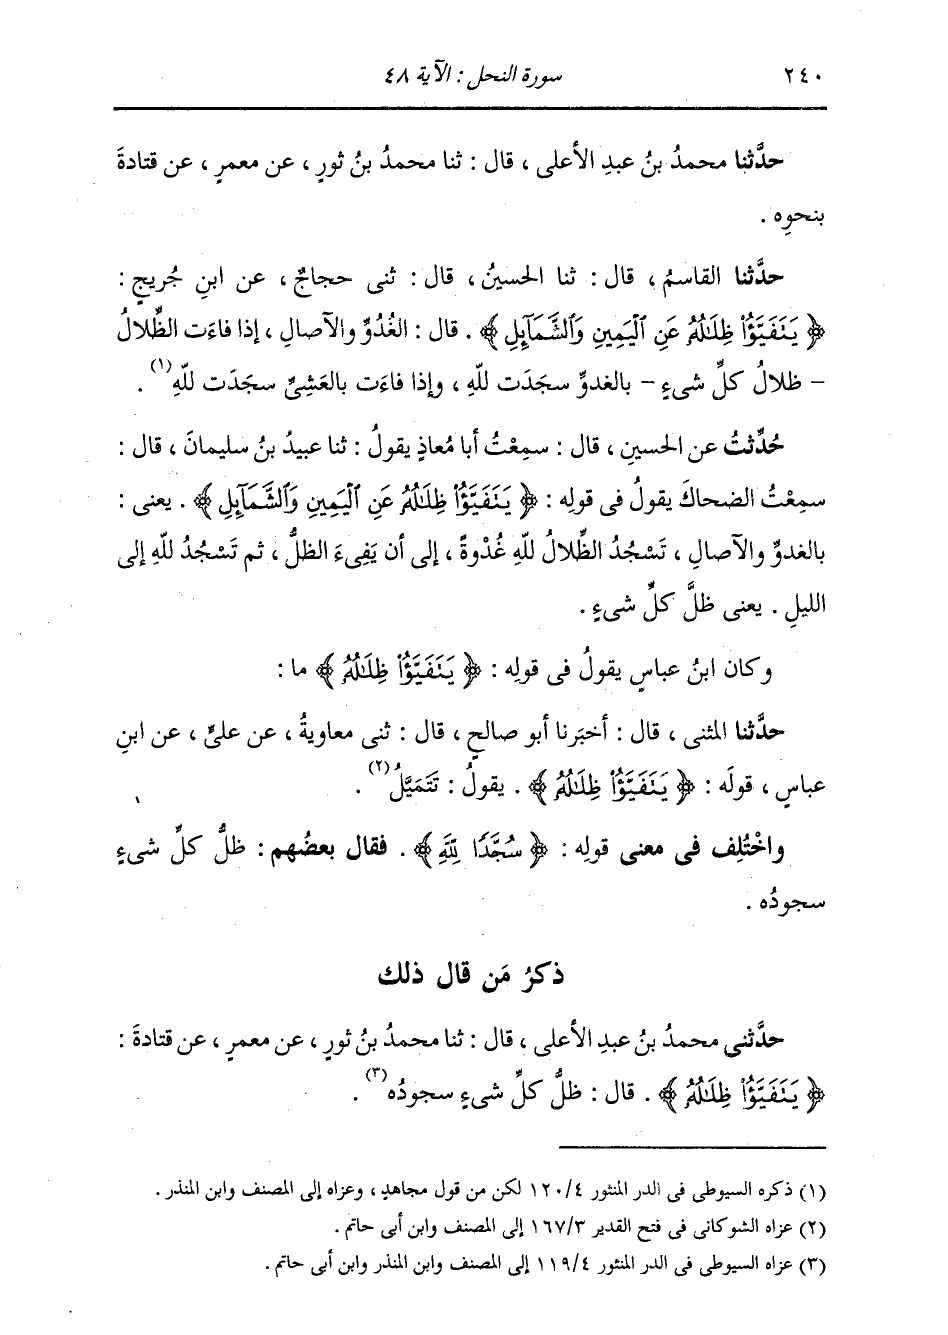 ٢٤٠ سورة النحل : الآية ٤٨
حدَّثنا محمدُ بنُ عبدِ الأعلى ، قال : ثنا محمدُ بنُ ثورٍ ، عن معمرٍ ، عن قتادةَ
بنحوِه .
حدَّثنا القاسمُ ، قال : ثنا الحسينُ ، قال : ثنى حجاجٌ ، عن ابنِ جُريجٍ :
﴿ يَنَفَيَّؤُا۟ ظِلَٰلُهُ عَنِ ٱلْيَمِينِ وَٱلشَّمَآئِلِ ﴾ . قال : الغُدُوِّ والآصالِ ، إذا فاءَت الظِّلالُ
– ظلالُ كلِّ شيءٍ – بالغدوِّ سجَدَت للَّهِ ، وإذا فاءَت بالعَشِىِّ سجَدَت للَّهِ(١) .
حُدِّثتُ عن الحسينِ ، قال : سمِعْتُ أبا مُعاذٍ يقولُ : ثنا عبيدُ بنُ سليمانَ ، قال :
سمِعْتُ الضحاكَ يقولُ فى قولِه : ﴿ يَنَفَيَّؤُا۟ ظِلَٰلُهُ عَنِ ٱلْيَمِينِ وَٱلشَّمَآئِلِ ﴾ . يعنى :
بالغدوِّ والآصالِ ، تَسْجُدُ الظِّلالُ للَّهِ غُدْوةً ، إلى أن يَفِىءَ الظلُّ ، ثم تَسْجُدُ للَّهِ إلى
الليلِ . يعنى ظلَّ كلِّ شىءٍ .
وكان ابنُ عباسٍ يقولُ فى قولِه : ﴿ يَنَفَيَّؤُا۟ ظِلَٰلُهُ ﴾ ما :
حدَّثنا المثنى ، قال : أخبَرنا أبو صالحٍ ، قال : ثنى معاويةُ ، عن علىٍّ ، عن ابنِ
عباسٍ ، قولَه : ﴿ يَنَفَيَّؤُا۟ ظِلَٰلُهُ ﴾ . يقولُ : تَتَميَّلُ(٢) .
واخْتُلِف فى معنى قولِه : ﴿ سُجَّدًا لِلَّهِ ﴾ . فقال بعضُهم : ظلُّ كلِّ شىءٍ
سجودُه .
ذكرُ مَن قال ذلك
حدَّثنى محمدُ بنُ عبدِ الأعلى ، قال : ثنا محمدُ بنُ ثورٍ ، عن معمرٍ ، عن قتادةَ :
﴿ يَنَفَيَّؤُا۟ ظِلَٰلُهُ ﴾ . قال : ظلُّ كلِّ شىءٍ سجودُه(٣) .
(١) ذكره السيوطى فى الدر المنثور ١٢٠/٤ لكن من قول مجاهدٍ ، وعزاه إلى المصنف وابن المنذر .
(٢) عزاه الشوكانى فى فتح القدير ١٦٧/٣ إلى المصنف وابن أبى حاتم .
(٣) عزاه السيوطى فى الدر المنثور ١١٩/٤ إلى المصنف وابن المنذر وابن أبى حاتم .